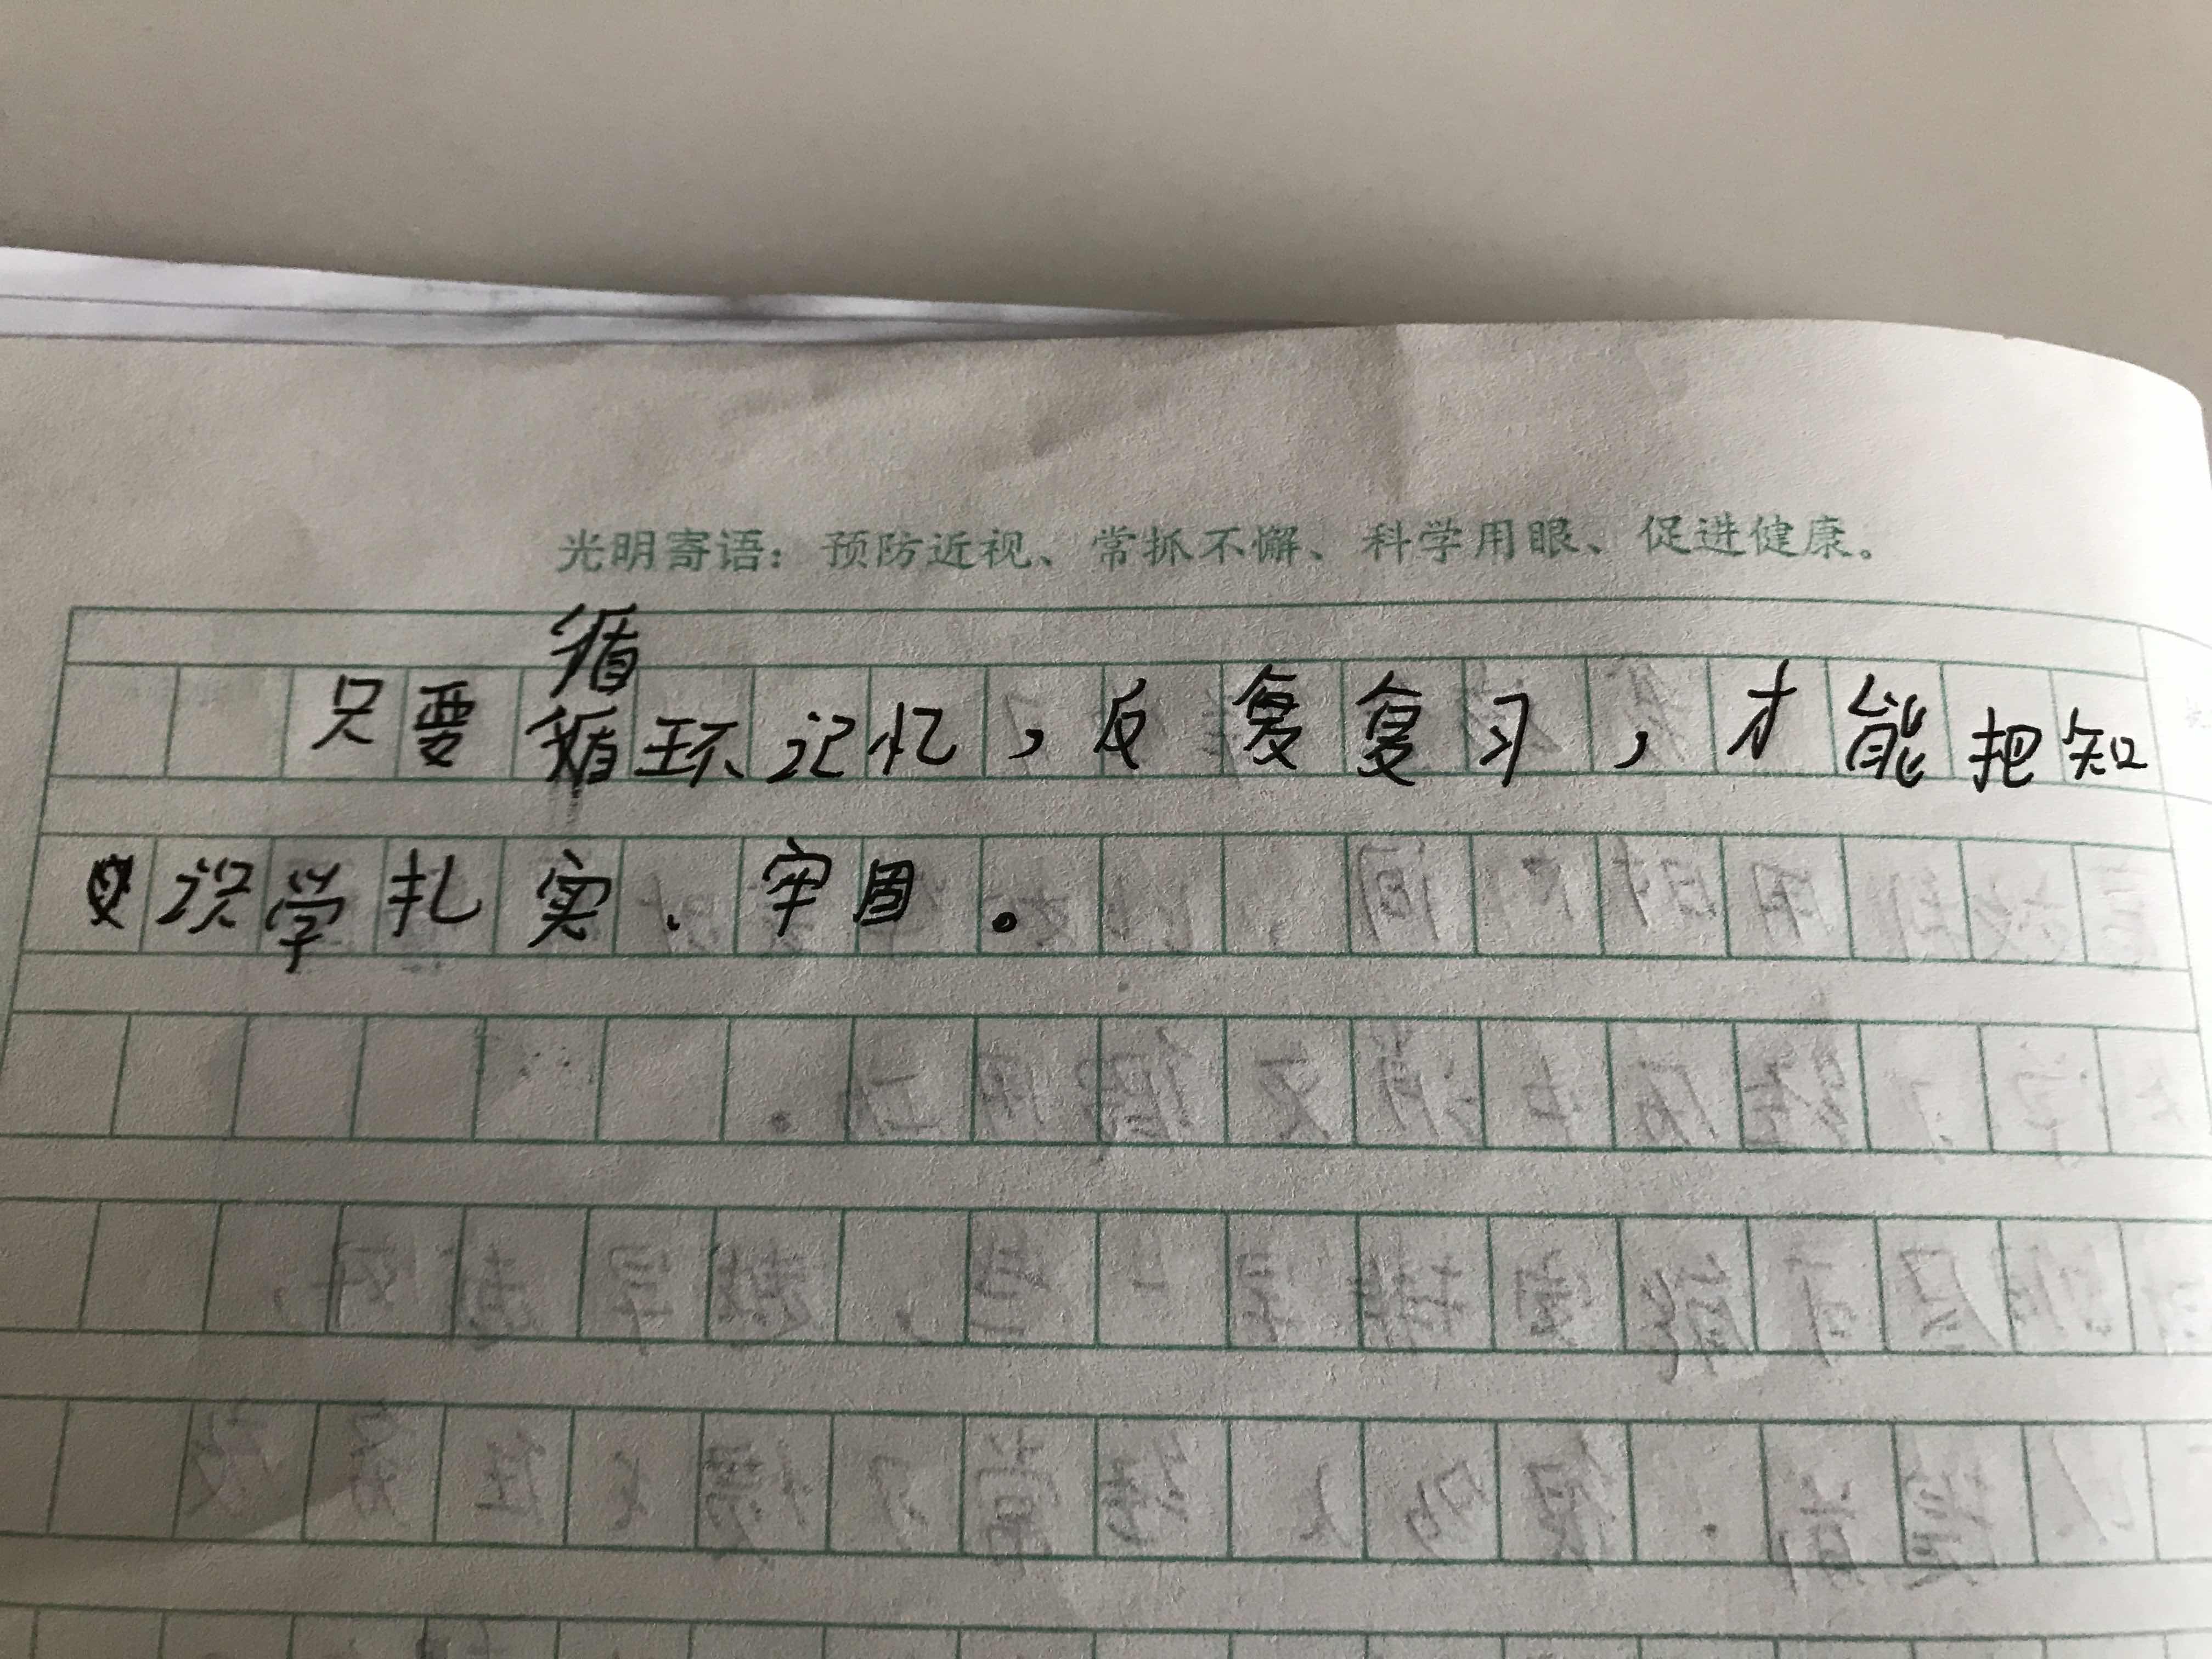 光明寄语：预防近视、常抓不懈、科学用眼、促进健康。
循
只要循环记忆，反复复习，才能把知
识学扎实、牢固。